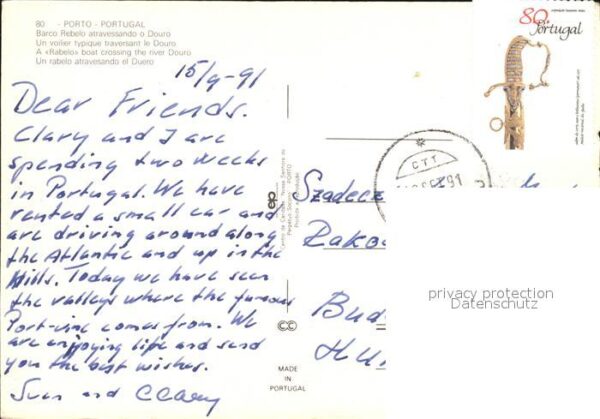 80 - PORTO - PORTUGAL
Barco Rebelo atravessando o Douro
Un voilier typique traversant le Douro
A «Rabelo» boat crossing the river Douro
Un rabelo atravesando el Duero
15/9-91
Dear Friends.
Clary and I are
spending two weeks
in Portugal. We have
rented a small car and
are driving around along
the Atlantic and up in the
Hills. Today we have seen
the valleys where the famous
Port-vine comes from. We
are enjoying life and send
you the best wishes.
Sven and Clary
MADE
IN
PORTUGAL
80.
Portugal
CTT
Szadecz
Rako
Bud
Hu
privacy protection
Datenschutz